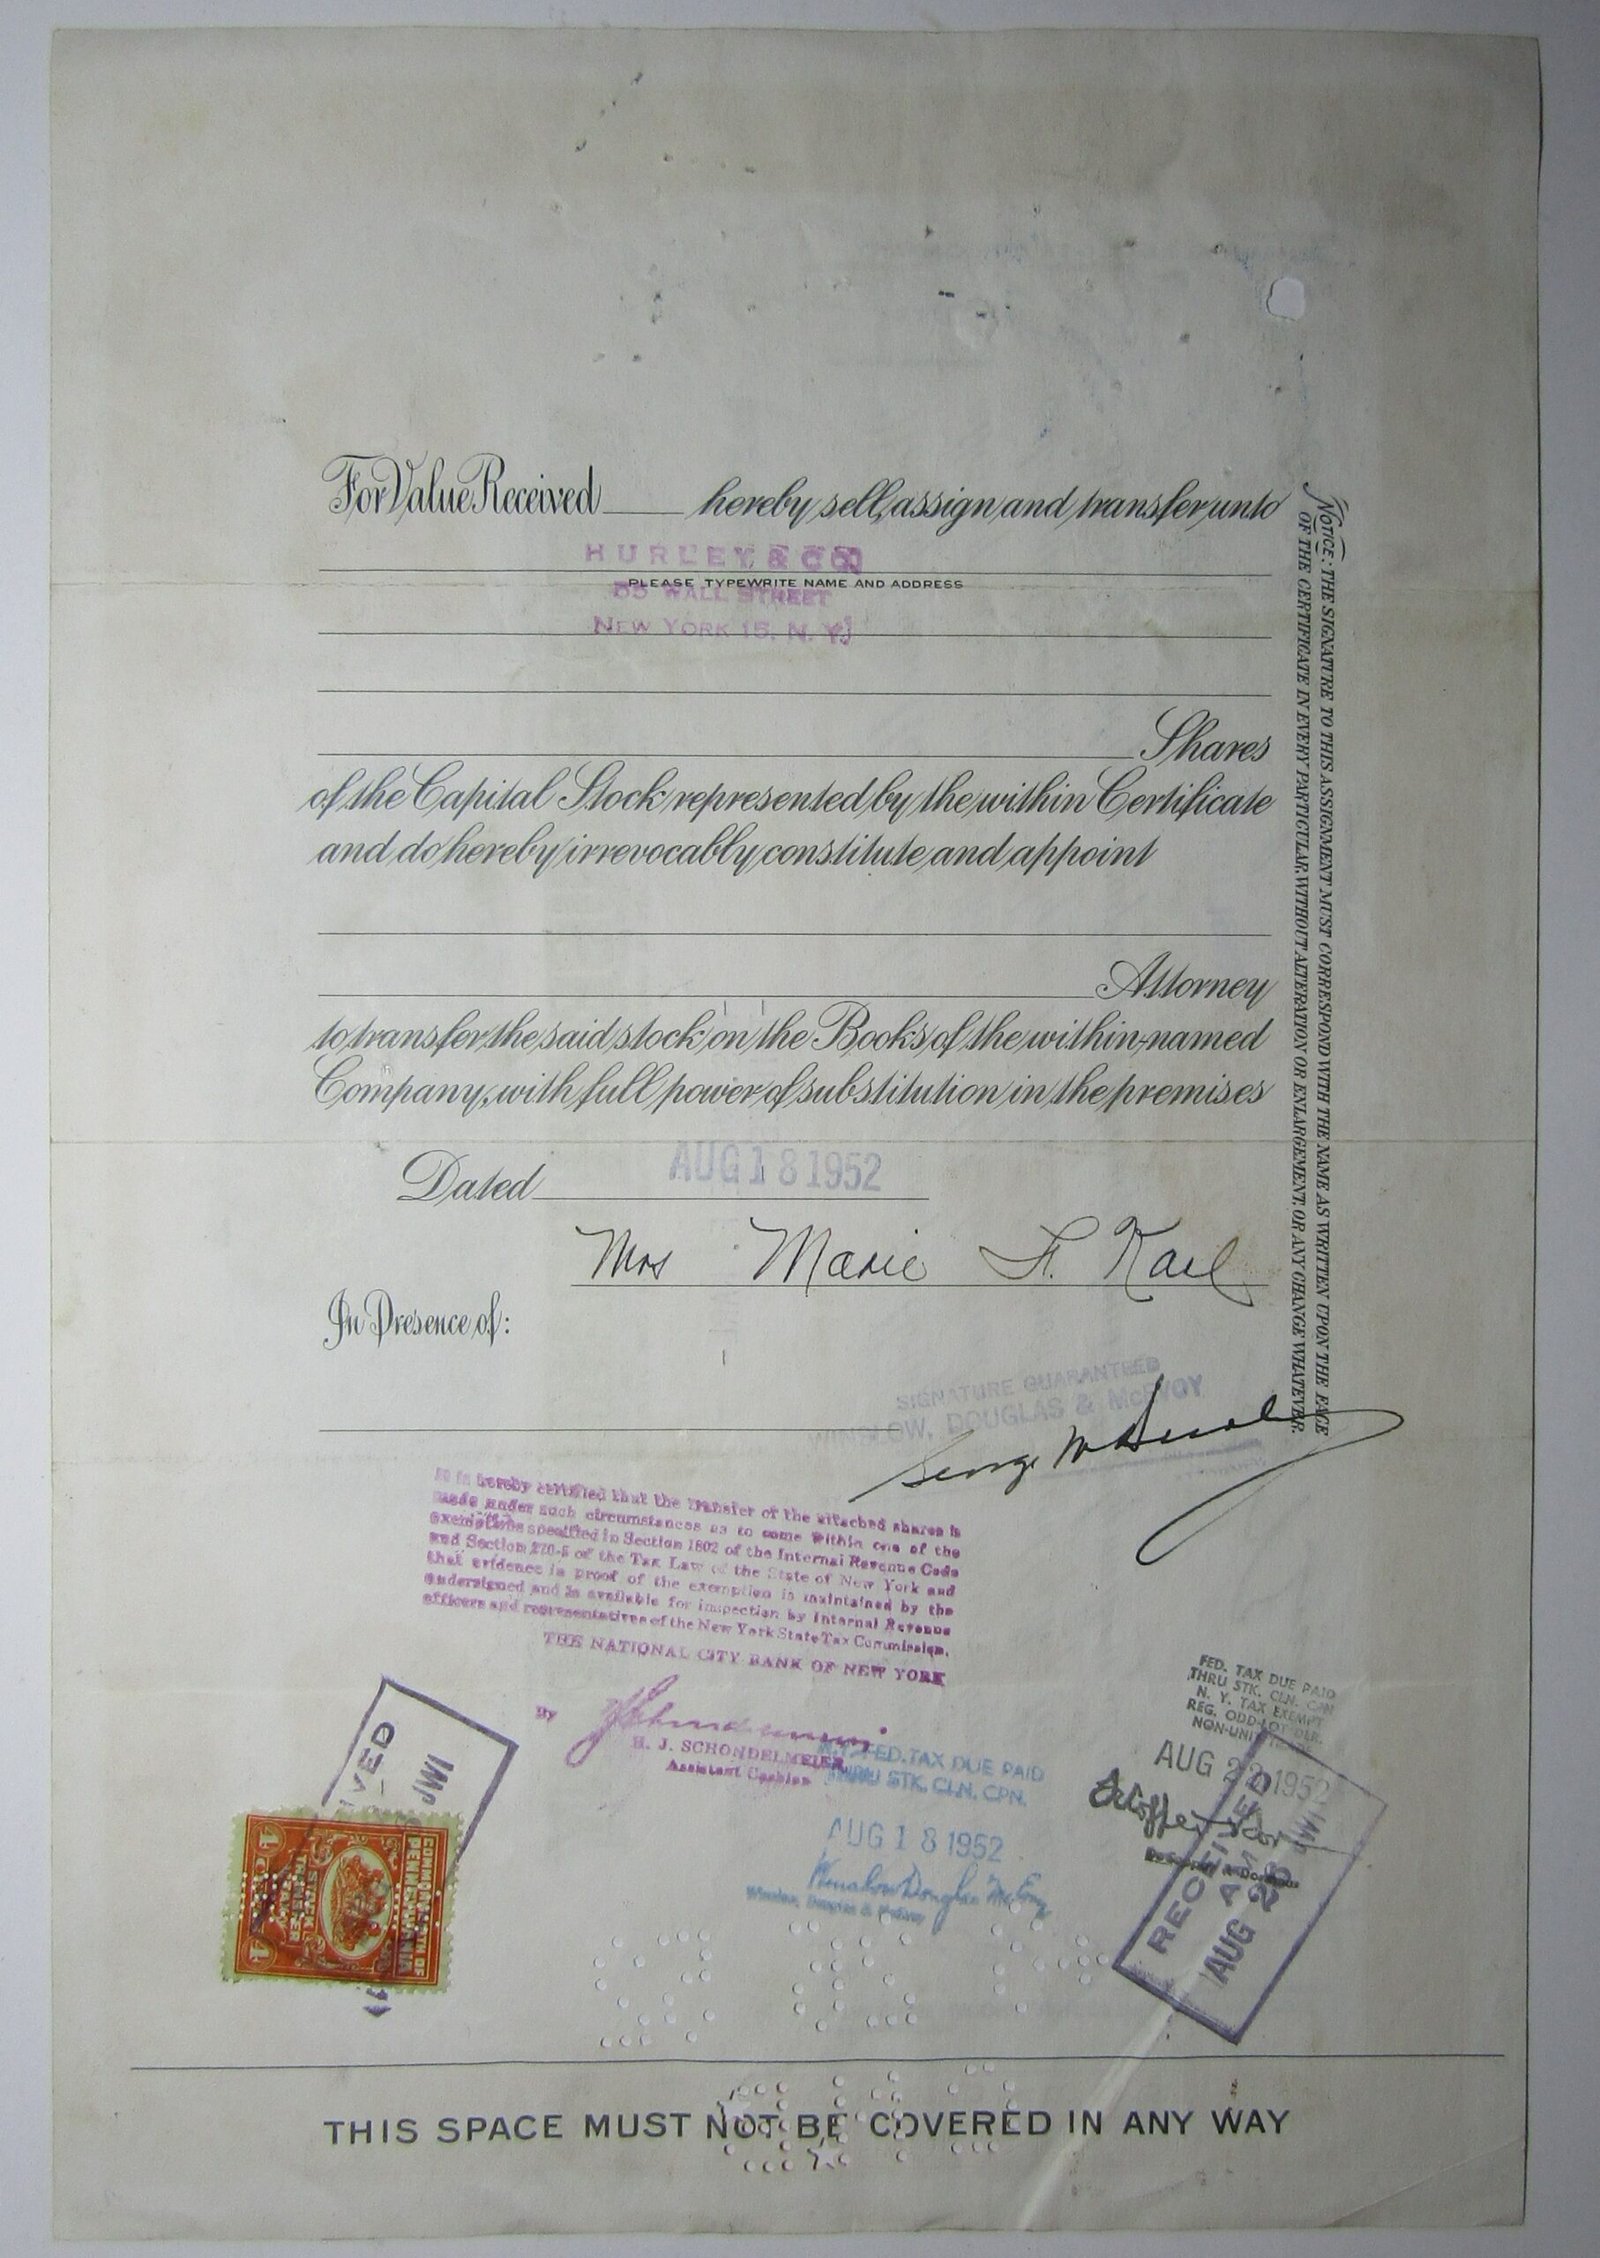 For Value Received hereby sell, assign and transfer unto
HURLEY & CO.
PLEASE TYPEWRITE NAME AND ADDRESS
55 WALL STREET
NEW YORK 15, N. Y.
Shares
of the Capital Stock represented by the within Certificate
and do hereby irrevocably constitute and appoint
Attorney
to transfer the said stock on the Books of the within-named
Company, with full power of substitution in the premises
Dated AUG 18 1952
Mrs Marie F. Karl
In Presence of:
NOTICE: THE SIGNATURE TO THIS ASSIGNMENT MUST CORRESPOND WITH THE NAME AS WRITTEN UPON THE FACE
OF THE CERTIFICATE IN EVERY PARTICULAR, WITHOUT ALTERATION OR ENLARGEMENT, OR ANY CHANGE WHATEVER.
SIGNATURE GUARANTEED
WINSLOW, DOUGLAS & McEVOY
George
It is hereby certified that the transfer of the attached shares is
made under such circumstances as to come within one of the
exemptions specified in Section 1802 of the Internal Revenue Code
and Section 270-5 of the Tax Law of the State of New York and
that evidence in proof of the exemption is maintained by the
undersigned and is available for inspection by Internal Revenue
officers and representatives of the New York State Tax Commission.
THE NATIONAL CITY BANK OF NEW YORK
By
H. J. SCHONDELMEIER
Assistant Cashier
FED. TAX DUE PAID
THRU STK. CLN. CPN.
AUG 18 1952
Winslow Douglas McEvoy
Winslow, Douglas & McEvoy
FED. TAX DUE PAID
THRU STK. CLN. CPN.
N. Y. TAX EXEMPT
REG. ODD-LOT DLR.
AUG 22 1952
RECEIVED
AM
AUG 25
JWI
IVED
JWI
COMMONWEALTH OF
PENNSYLVANIA
STOCK
TRANSFER
TAX
4 CENTS 4
THIS SPACE MUST NOT BE COVERED IN ANY WAY